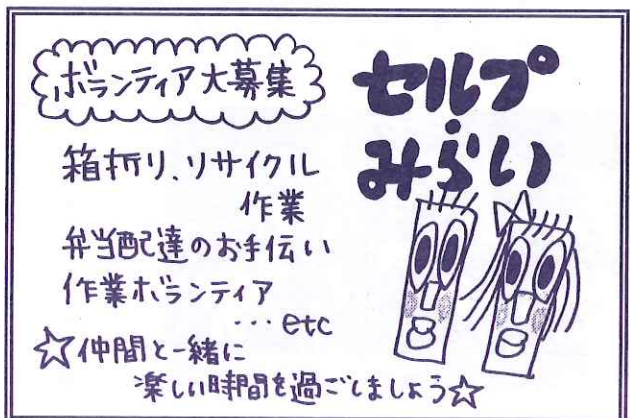 ボランティア大募集
箱折り、リサイクル
作業
弁当配達のお手伝い
作業ボランティア
…etc
☆仲間と一緒に
楽しい時間を過ごしましょう☆
セルプ
みらい